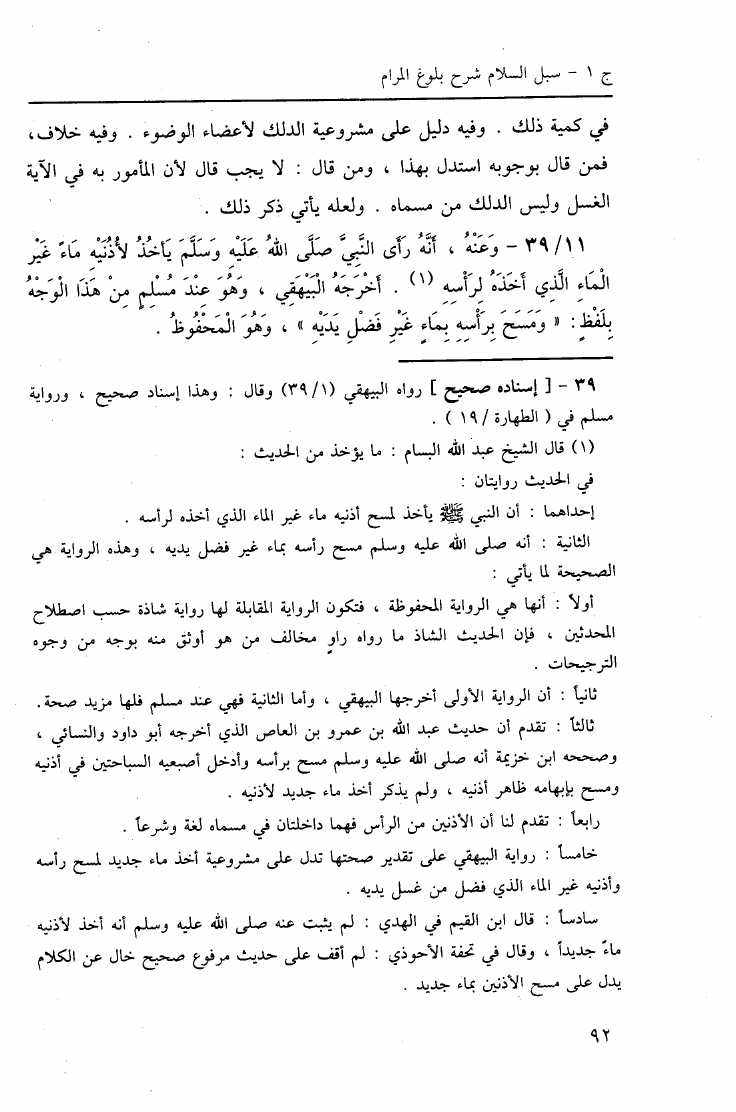 ج ١ - سبل السلام شرح بلوغ المرام
في كمية ذلك . وفيه دليل على مشروعية الدلك لأعضاء الوضوء . وفيه خلاف،
فمن قال بوجوبه استدل بهذا ، ومن قال : لا يجب قال لأن المأمور به في الآية
الغسل وليس الدلك من مسماه . ولعله يأتي ذكر ذلك .
٣٩/١١ - وَعَنْهُ ، أَنَّهُ رَأَى النَّبِيَّ صَلَّى اللهُ عَلَيْهِ وَسَلَّمَ يَأْخُذُ لأُذُنَيْهِ مَاءً غَيْرَ
الْمَاءِ الَّذِي أَخَذَهُ لِرَأْسِهِ (١) . أَخْرَجَهُ الْبَيْهَقِي ، وَهُوَ عِنْدَ مُسْلِمٍ مِنْ هَذَا الْوَجْهُ
بِلَفْظٍ: « وَمَسَحَ بِرَأْسِهِ بِمَاءٍ غَيْرِ فَضْلِ يَدَيْهِ » ، وَهُوَ الْمَحْفُوظُ .
٣٩ - [ إسناده صحيح ] رواه البيهقي (٣٩/١) وقال : وهذا إسناد صحيح ، ورواية
مسلم في ( الطهارة /١٩ ) .
(١) قال الشيخ عبد الله البسام : ما يؤخذ من الحديث :
في الحديث روايتان :
إحداهما : أن النبي ﷺ يأخذ لمسح أذنيه ماء غير الماء الذي أخذه لرأسه .
الثانية : أنه صلى الله عليه وسلم مسح رأسه بماء غير فضل يديه ، وهذه الرواية هي
الصحيحة لما يأتي :
أولاً : أنها هي الرواية المحفوظة ، فتكون الرواية المقابلة لها رواية شاذة حسب اصطلاح
المحدثين ، فإن الحديث الشاذ ما رواه راوٍ مخالف من هو أوثق منه بوجه من وجوه
الترجيحات .
ثانياً : أن الرواية الأولى أخرجها البيهقي ، وأما الثانية فهي عند مسلم فلها مزيد صحة.
ثالثاً : تقدم أن حديث عبد الله بن عمرو بن العاص الذي أخرجه أبو داود والنسائي ،
وصححه ابن خزيمة أنه صلى الله عليه وسلم مسح برأسه وأدخل أصبعيه السباحتين في أذنيه
ومسح بإبهامه ظاهر أذنيه ، ولم يذكر أخذ ماء جديد لأذنيه .
رابعاً : تقدم لنا أن الأذنين من الرأس فهما داخلتان في مسماه لغة وشرعاً .
خامساً : رواية البيهقي على تقدير صحتها تدل على مشروعية أخذ ماء جديد لمسح رأسه
وأذنيه غير الماء الذي فضل من غسل يديه .
سادساً : قال ابن القيم في الهدي : لم يثبت عنه صلى الله عليه وسلم أنه أخذ لأذنيه
ماءً جديداً ، وقال في تحفة الأحوذي : لم أقف على حديث مرفوع صحيح خال عن الكلام
يدل على مسح الأذنين بماء جديد .
٩٢